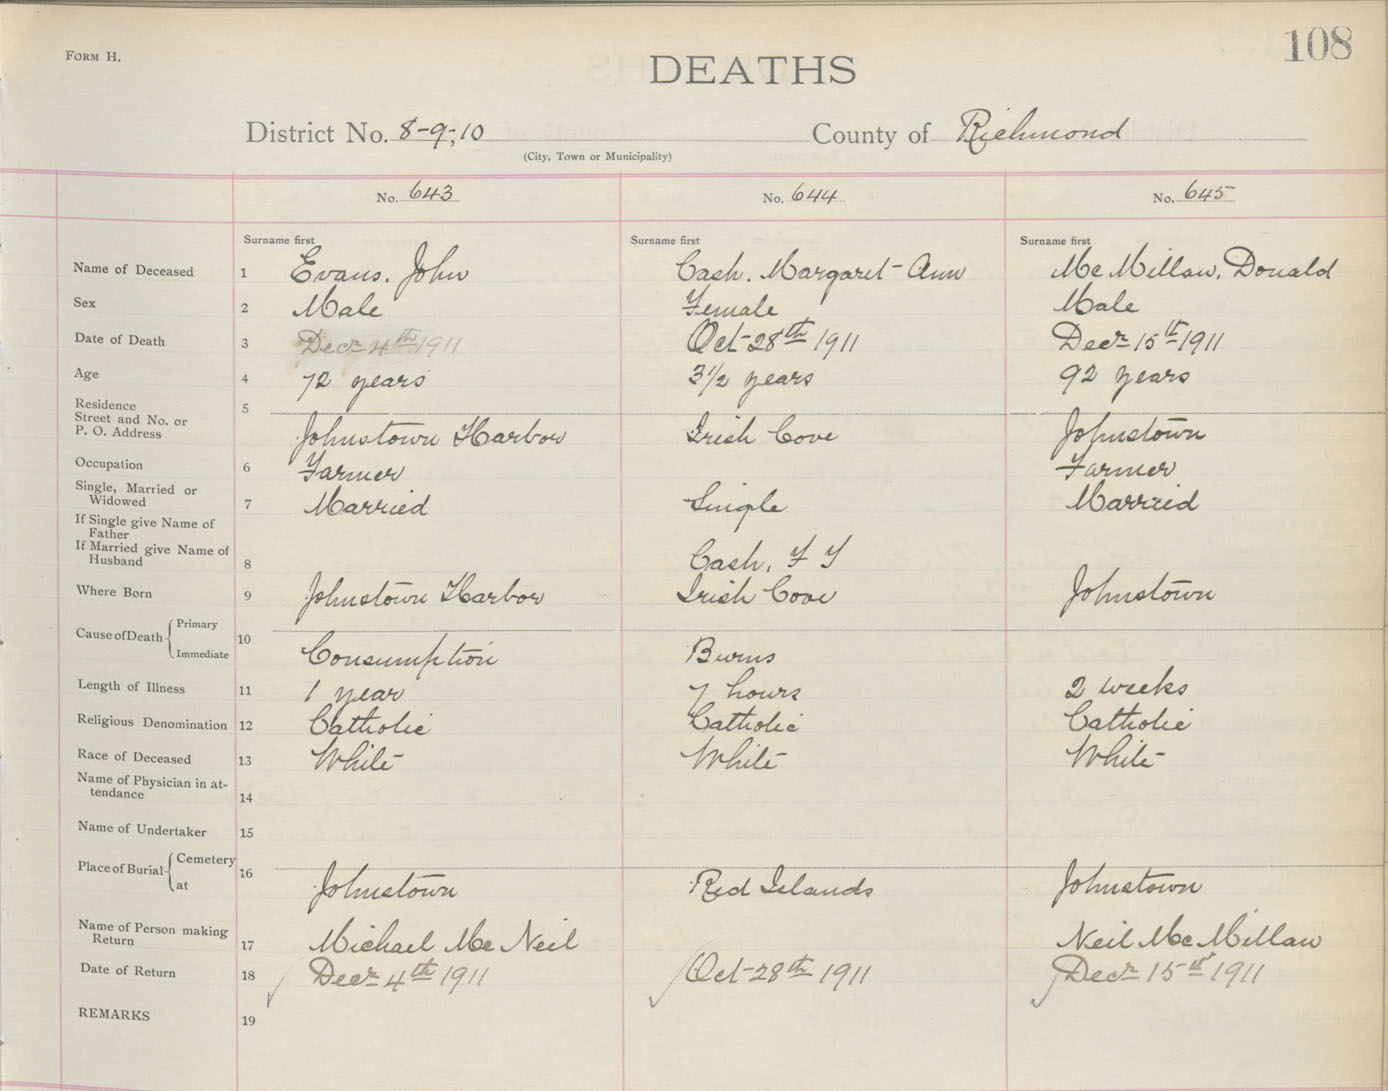 FORM H.
108
DEATHS
District No. 8-9, 10 County of Richmond
(City, Town or Municipality)
No. 643 No. 644 No. 645
Surname first Surname first Surname first
Name of Deceased 1 Evans, John Cash, Margaret-Ann McMillan, Donald
Sex 2 Male Female Male
Date of Death 3 Decr 4th 1911 Oct-28th 1911 Decr 15th 1911
Age 4 72 years 3½ years 92 years
Residence
Street and No. or 5
P. O. Address Johnstown Harbor Irish Cove Johnstown
Occupation 6 Farmer Farmer
Single, Married or
Widowed 7 Married Single Married
If Single give Name of
Father
If Married give Name of
Husband 8 Cash,
Where Born 9 Johnstown Harbor Irish Cove Johnstown
Cause of Death Primary 10
Immediate Consumption Burns
Length of Illness 11 1 year 7 hours 2 weeks
Religious Denomination 12 Catholic Catholic Catholic
Race of Deceased 13 White White White
Name of Physician in at-
tendance 14
Name of Undertaker 15
Place of Burial Cemetery 16
at Johnstown Red Islands Johnstown
Name of Person making
Return 17 Michael McNeil Neil McMillan
Date of Return 18 Decr 4th 1911 Oct-28th 1911 Decr 15th 1911
REMARKS 19